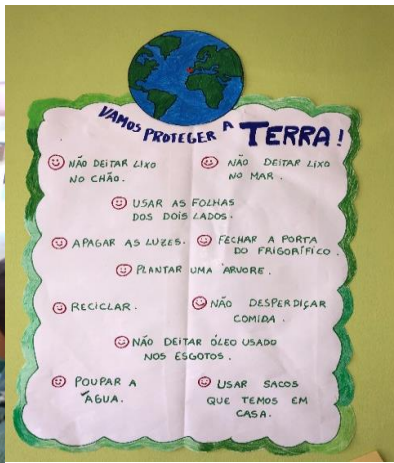 VAMOS PROTEGER A TERRA!
NÃO DEITAR LIXO
NO CHÃO.
NÃO DEITAR LIXO
NO MAR.
USAR AS FOLHAS
DOS DOIS LADOS.
APAGAR AS LUZES.
FECHAR A PORTA
DO FRIGORÍFICO.
PLANTAR UMA ÁRVORE.
RECICLAR.
NÃO DESPERDIÇAR
COMIDA.
NÃO DEITAR ÓLEO USADO
NOS ESGOTOS.
POUPAR A
ÁGUA.
USAR SACOS
QUE TEMOS EM
CASA.